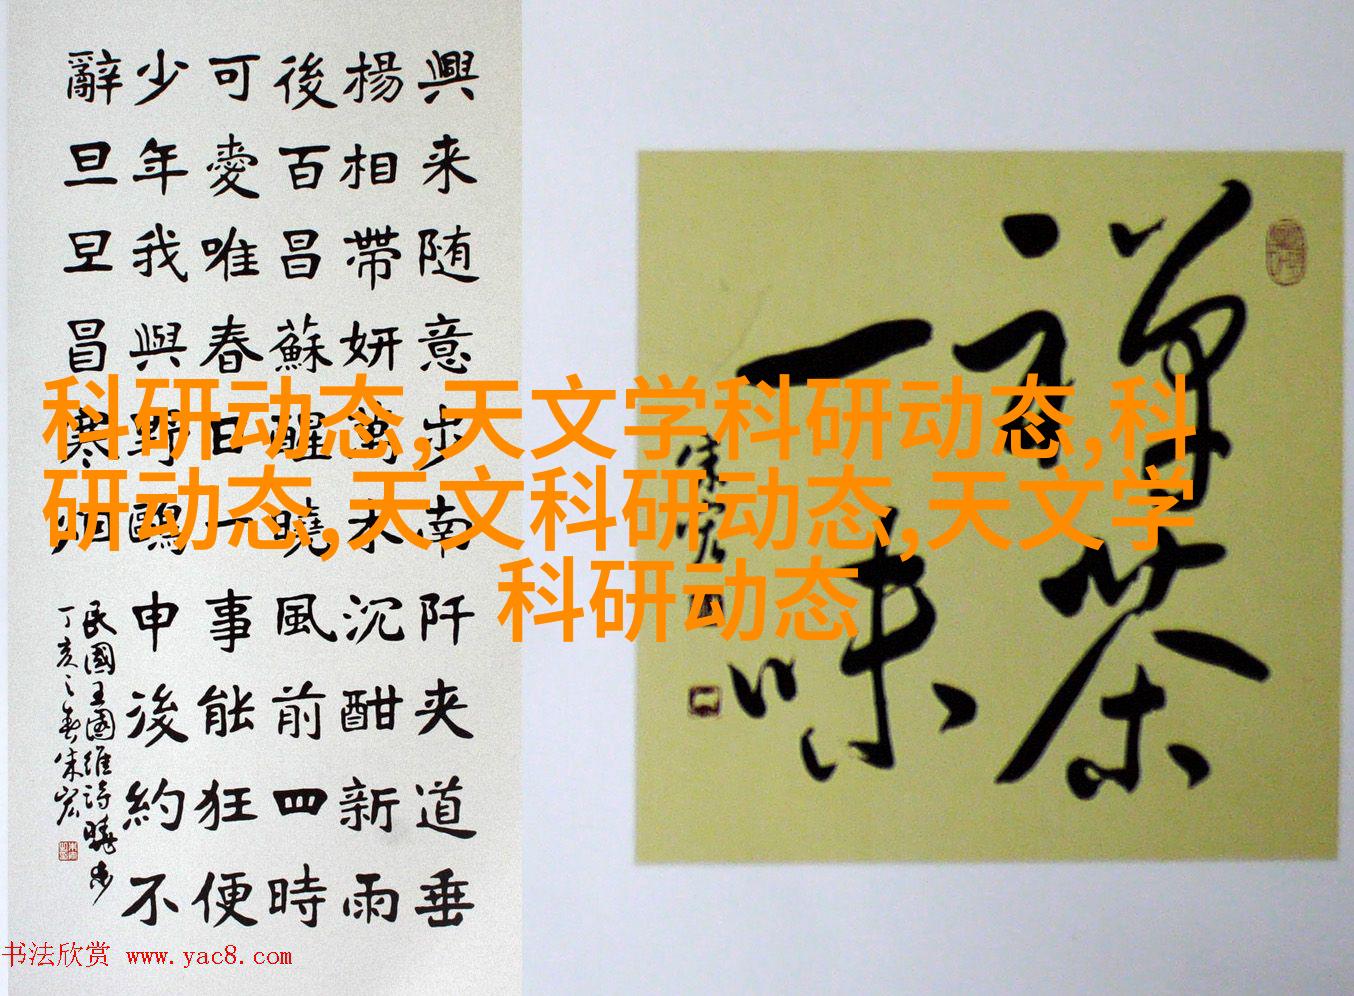 興来随意步南阡夹道垂
楊相帶妍萬木沉酣新雨
後百昌蘇醒曉風前四時
可愛唯春日一事能狂便
少年我與野鷗申後約不
辭旦旦冒寒烟
民國王國維詩曉步
丁亥之春朱宏
禅茶
一味
朱宏
科研动态,天文学科研动态,科
研动态,天文科研动态,天文学
科研动态
书法欣赏 www.yac8.com